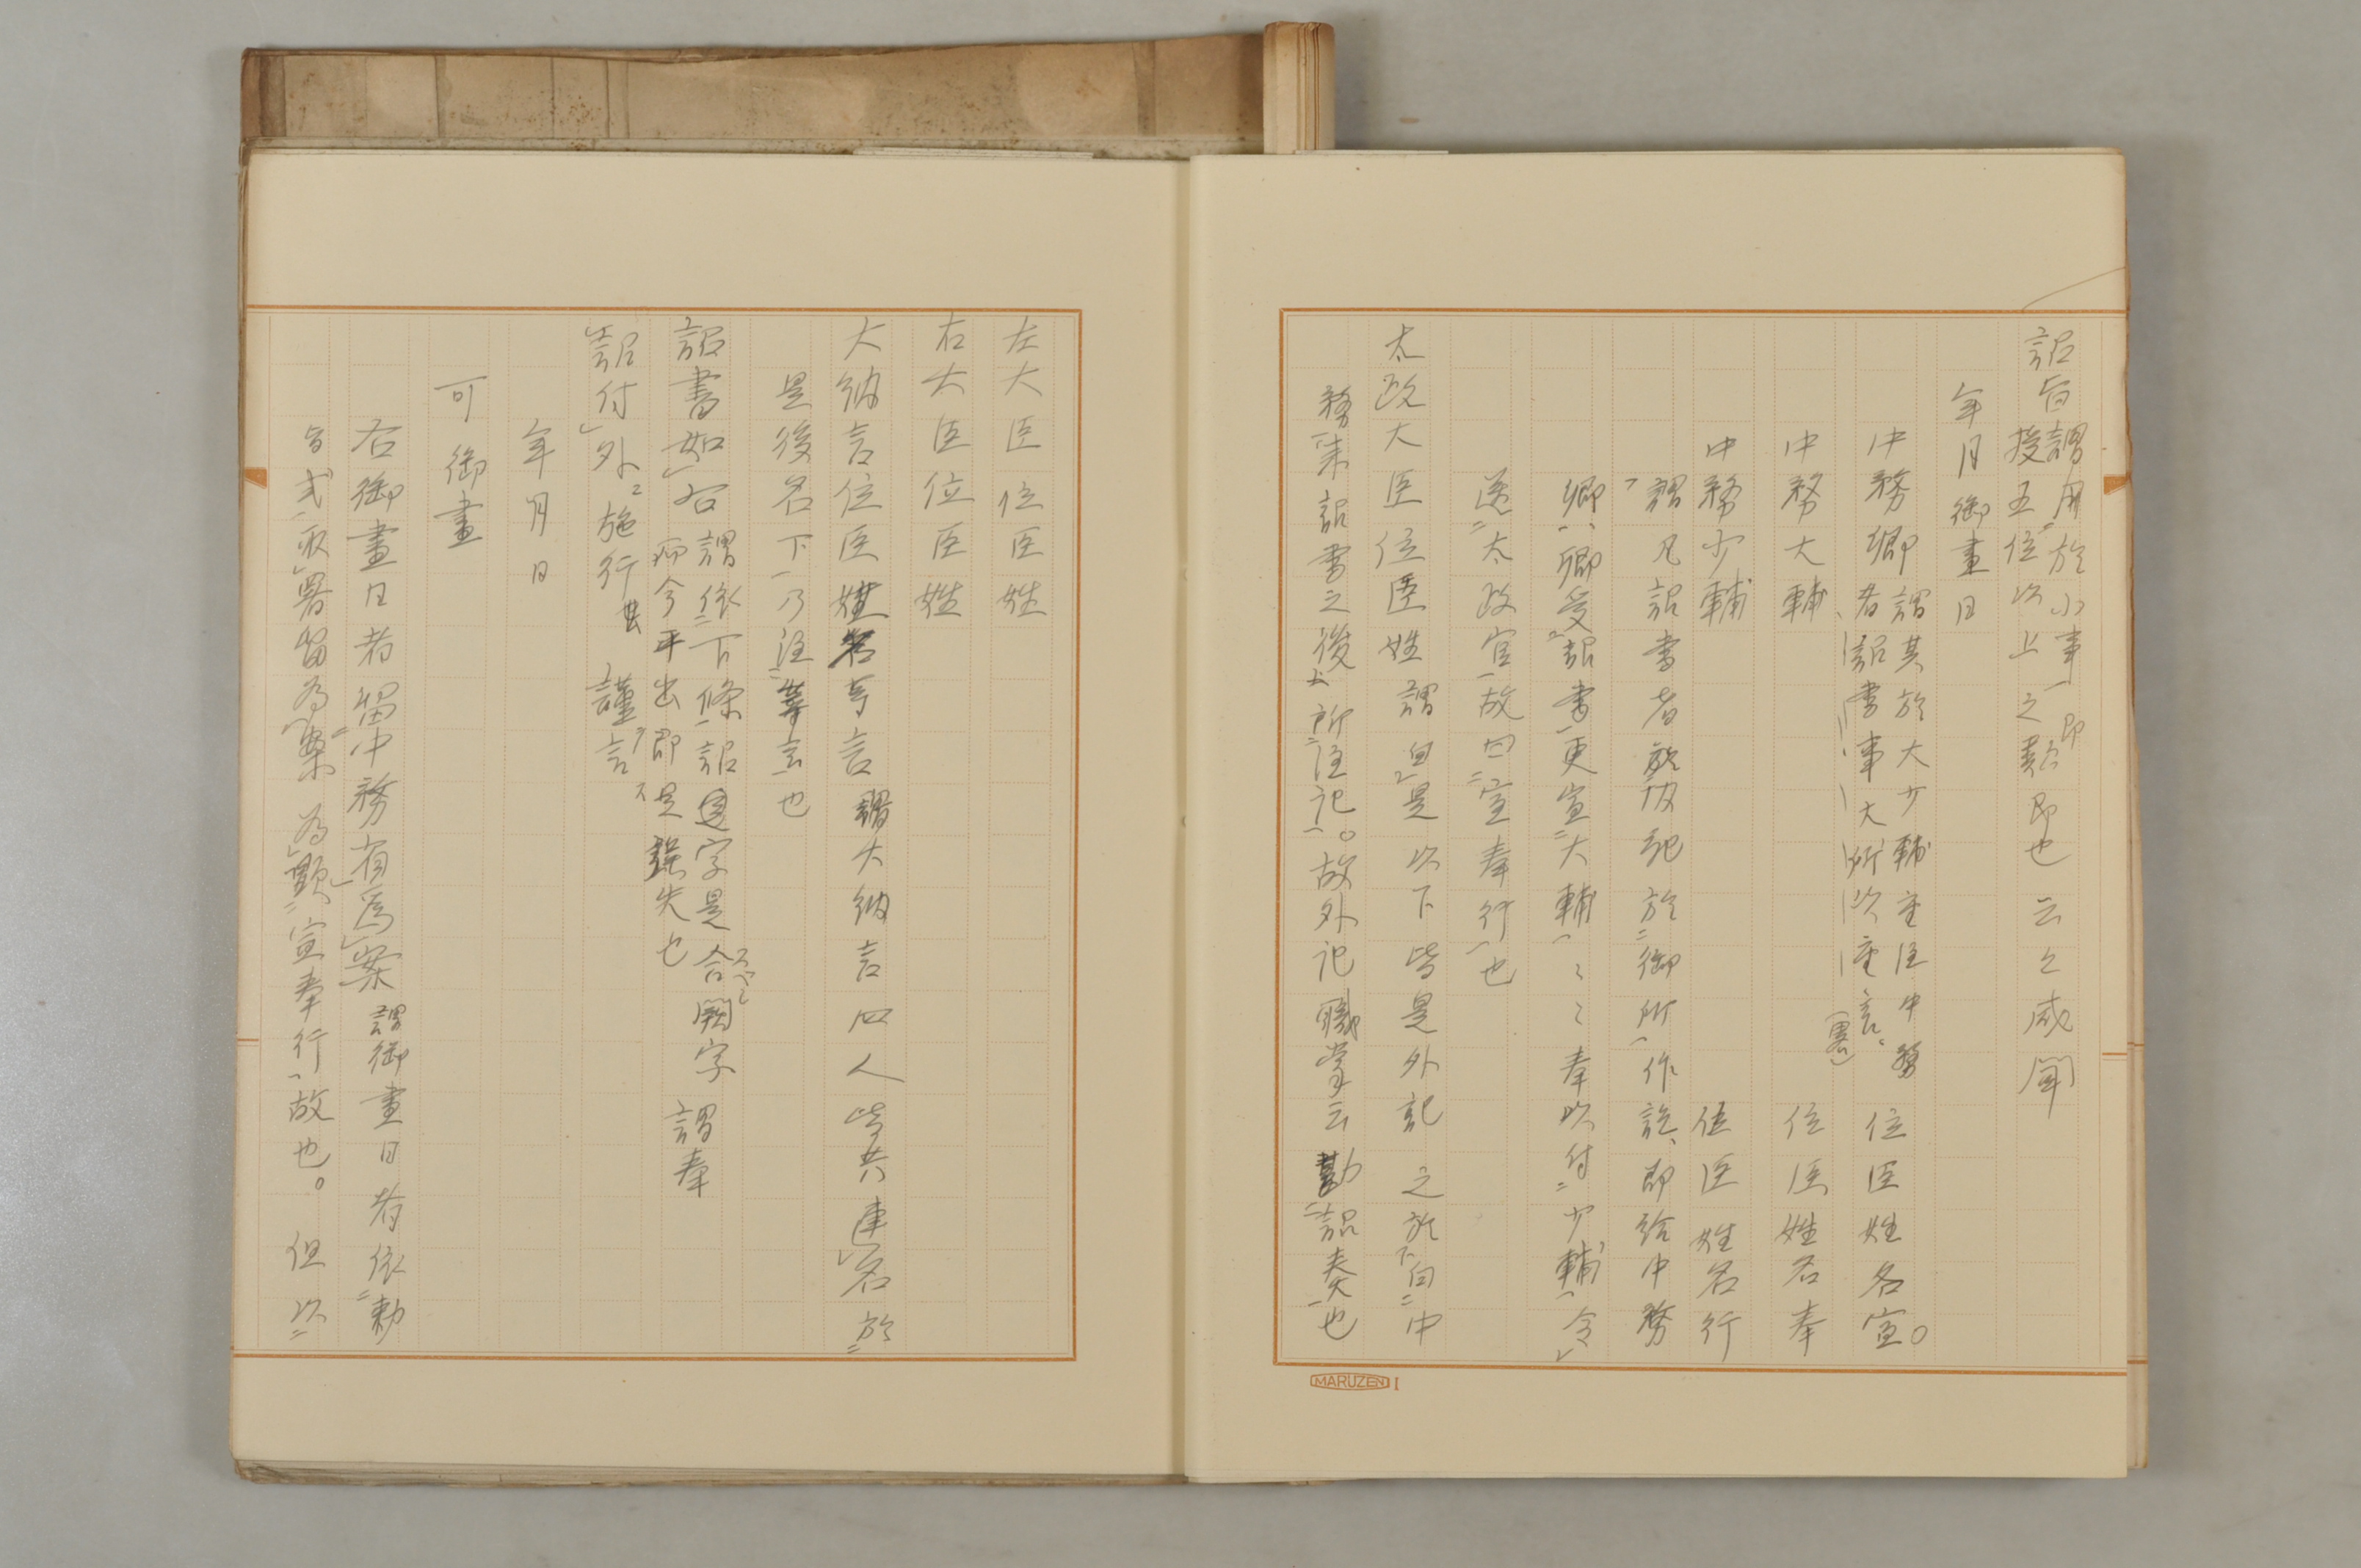 詔旨謂用於小事即
授五位以上之類即也 云々咸聞
年月御畫日
中務卿謂其於大少輔重注中務
者詔書事大所以重言。 位臣姓名宣。
中務大輔 位臣姓名奉
中務少輔 位臣姓名行
謂凡詔書者於御所作訖、即給中務
卿、卿受詔書更宣大輔、々々奉以付少輔令
送太政官故曰宣奉行也
太政大臣位臣姓 謂自是以下皆是外記之於下自中
務来詔書之後所注記。故外記職掌云勘詔奏也
MARUZEN I
左大臣位臣姓
右大臣位臣姓
大納言位臣姓名等言 謂大納言四人皆共連名於
是後名下乃注等言也
詔書如右 謂依下條詔書字是合闕字
而今平出即是錯失也 謂奉
詔付外施行 謹言
年月日
可御畫
右御畫日者留中務省為案 謂御畫日者依勅
旨式取署留為案 為顕宣奉行故也。但以